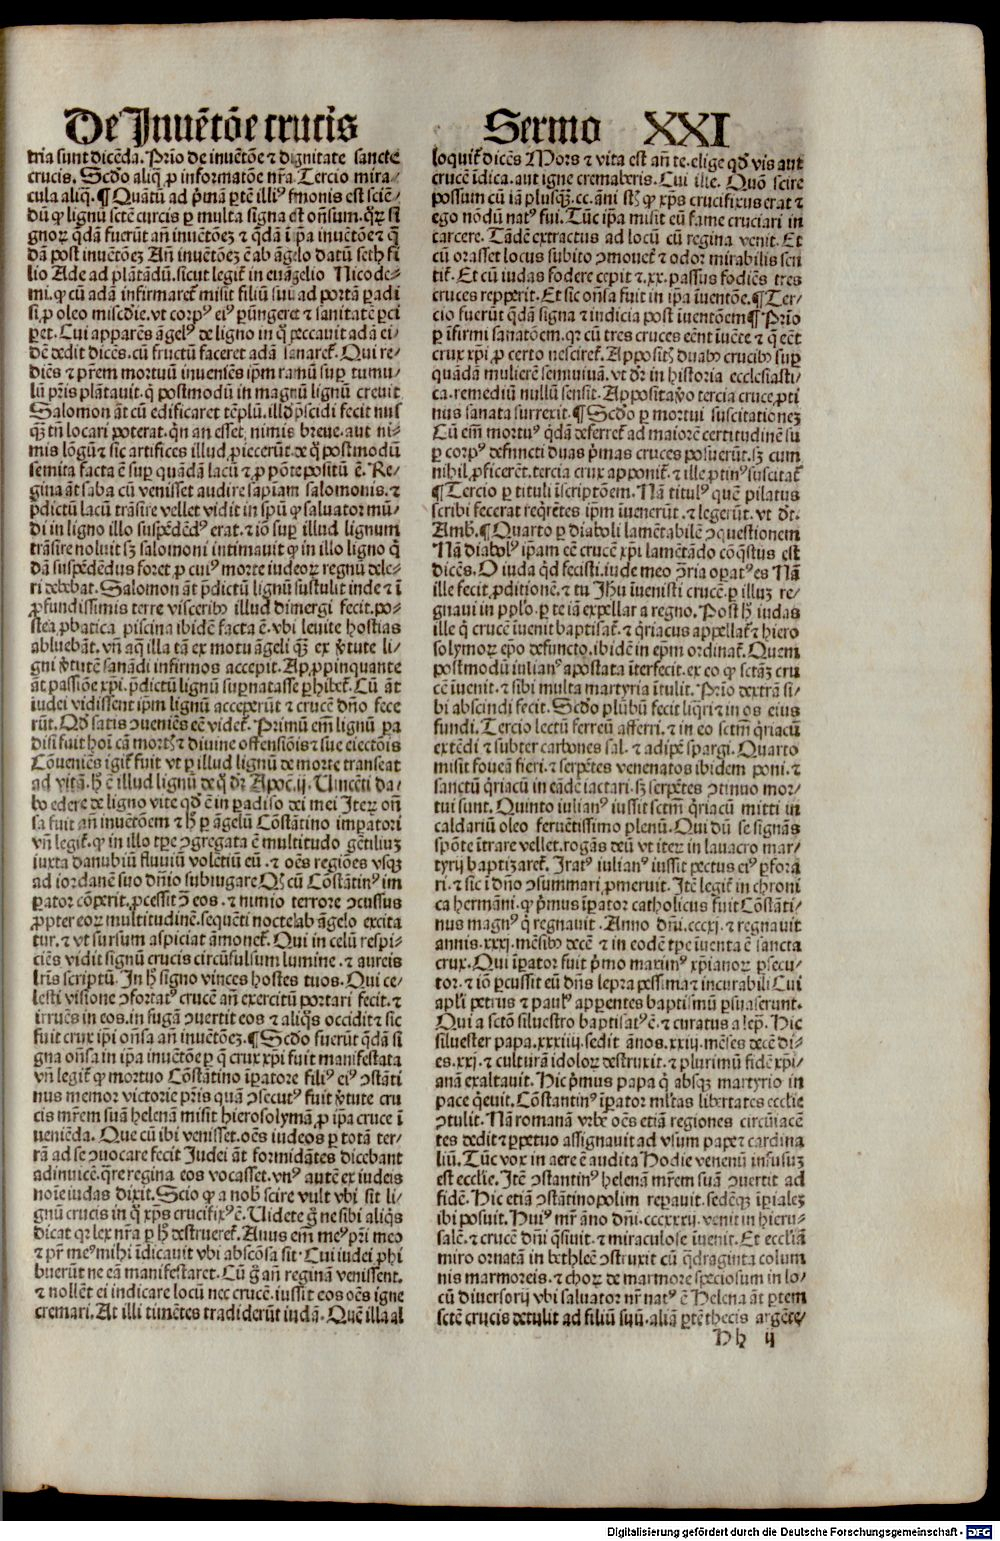 De Inuētōe crucis
tria sunt dicēda. Prio de inuētōe ⁊ dignitate sancte
crucis. Scdo aliq̄ ꝓ informatōe nr̄a Tercio mira/
cula aliq̄. ¶ Quātū ad p̄mā ꝑtē illiꝰ ẜmonis est sciē/
dū ꝙ lignū sctē curcis ꝑ multa signa est on̄sum. qꝝ si
gnoꝝ q̄dā fuerūt an̄ inuētōeꝫ ⁊ q̄dā ī ip̄a inuētōe ⁊ q̄
dā post inuētōeꝫ An̄ inuētōeꝫ ē ab āgelo datū seth fi
lio Ade ad plātādū. sicut legiꝉ in euāgelio Nicode/
mi. ꝙ cū adā infirmareꝉ misit filiū suū ad portā ꝑadi
si. ꝓ oleo miscdie. vt corpꝰ eiꝰ ꝑūngeret ⁊ sanitatē ꝑci
ꝑet. Cui apparēs āgelꝰ de ligno in q̄ peccauit adā ei/
dē dedit dicēs. cū fructū faceret adā sanareꝉ. Qui re/
diēs ⁊ pr̄em mortuū inueniēs ip̄m ramū suꝑ tumu/
lū pr̄is plātauit. q̄ postmodū in magnū lignū creuit
Salomon āt cū edificaret tēplū. illd p̄scidi fecit nus
qꝫ tn̄ locari poterat. qn̄ an esset nimis breue. aut ni/
mis lōgū ⁊ sic artifices illud ꝓiecerūt. de q̄ postmodū
semita facta ē suꝑ quādā lacū ⁊ ꝓ pōte positū ē. Re/
gina āt saba cū venisset audire sapiam salomonis. ⁊
p̄dictū lacū trāsire vellet vidit in spū ꝙ saluator mū/
di in ligno illo suspēdēdꝰ erat. ⁊ iō suꝑ illud lignum
trāsire noluit sꝫ salomoni intimauit ꝙ in illo ligno q̄
dā suspēdēdus foret. ꝓ cuiꝰ morte iudeoꝝ regnū dele/
ri debebat. Salomon āt p̄dictū lignū sustulit inde ⁊ ī
ꝓfundissimis terre visceribꝰ illud dimergi fecit. po/
stea ꝓbatica piscina ibidē facta ē. vbi leuite hostias
abluebāt. vn̄ aq̄ illa tā ex motu āgeli qꝫ ex v̄tute li/
gni v̄tutē sanādi infirmos accepit. Ap̄ꝓpinquante
āt passiōe xp̄i. p̄dictū lignū suꝑnatasse ꝑhibeꝉ. Cū āt
iudei vidissent ip̄m lignū acceperūt ⁊ crucē dn̄o fece
rūt. Qd̄ satis ɔueniēs eē videꝉ. Primū em̄ lignū ꝑa
disi fuit hoi cā mortꝭ ⁊ diuine offensiōis ⁊ sue eiectōis
Cōueniēs igiꝉ fuit vt ꝑ illud lignū de morte transeat
ad vitā. h̄ ē illud lignū de q̄ dr̄ Apoc. ij. Uincēti da/
bo edere de ligno vite qd̄ ē in ꝑadiso dei mei Iteꝝ on̄
sa fuit an̄ inuētōem ⁊ h̄ ꝑ āgelū Cōstātino imꝑatori
vn̄ legiꝉ. ꝙ in illo tꝑe ɔgregata ē multitudo gētiliuꝫ
iuxta danubiū fluuiū volētiū eū. ⁊ oēs regiōes vsqꝫ
ad iordanē suo dn̄io subiugare Qꝭ cū Cōstātinꝰ im
ꝑator cōperit. ꝓcessit ɔ̄ eos. ⁊ nimio terrore ɔcussus
ꝓpter eoꝝ multitudinē. sequēti nocte ab āgelo excita
tur. ⁊ vt sursum aspiciat āmoneꝉ. Qui in celū respi/
ciēs vidit signū crucis circūfulsum lumine. ⁊ aureis
lr̄is scriptū. In h̄ signo vinces hostes tuos. Qui ce/
lesti visione ɔfortatꝰ crucē an̄ exercitū portari fecit. ⁊
irruēs in eos. in fugā ɔuertit eos ⁊ aliq̄s occidit ⁊ sic
fuit crux ip̄i on̄sa an̄ inuētōeꝫ. ¶ Scdo fuerūt q̄dā si
gna on̄sa in ip̄a inuētōe ꝑ q̄ crux xp̄i fuit manifestata
vn̄ legiꝉ ꝙ mortuo Cōstātino īꝑatore filiꝰ eiꝰ ɔstāti
nus memor victorie pr̄is quā ɔsecutꝰ fuit v̄tute cru
cis mr̄em suā helenā misit hierosolymā. ꝓ ip̄a cruce ī
ueniēda. Que cū ibi venisset. oēs iudeos ꝑ totā ter/
rā ad se ɔuocare fecit Iudei āt formidātes dicebant
adinuicē. q̄re regina eos vocasset. vnꝰ autē ex iudeis
noie iudas dixit. Scio ꝙ a nob̄ scire vult vbi sit li/
gnū crucis in q̄ xp̄s crucifixꝰ ē. Uidete g̊ ne sibi aliq̄s
dicat qꝛ lex nr̄a ꝑ h̄ destruereꝉ. Auus em̄ meꝰ pr̄i meo
⁊ pr̄ meꝰ mihi īdicauit vbi abscōsa sit. Cui iudei ꝓhi
buerūt ne eā manifestaret. Cū g̊ an̄ reginā venissent.
⁊ nollēt ei indicare locū nec crucē. iussit eos oēs igne
cremari. At illi timētes tradiderūt iudā. Quē illa al
Sermo XXI
loquiꝉ dicēs Mors ⁊ vita est an̄ te. elige qd̄ vis aut
crucē īdica. aut igne cremaberis. Cui ille. Quō scire
possum cū iā plusqꝫ. cc. āni st̄ꝫ ꝙ xp̄s crucifixus erat ⁊
ego nōdū natꝰ fui. Tūc ip̄a misit eū fame cruciari in
carcere. Tādē extractus ad locū cū regina venit. Et
cū orasset locus subito ɔmoueꝉ ⁊ odor mirabilis sen
tiꝉ. Et cū iudas fodere cepit ⁊. xx. passus fodiēs tres
cruces repperit. Et sic on̄sa fuit in ip̄a īuentōe. ¶ Ter/
cio fuerūt q̄dā signa ⁊ indicia post īuentōem ¶ Prio
ꝑ īfirmi sanatōem. qꝛ cū tres cruces eēnt īuēte ⁊ q̄ eēt
crux xp̄i ꝓ certo nescireꝉ. Appositꝭ duabꝰ crucibꝰ suꝑ
quādā mulierē semiuiuā. vt dr̄ in historia ecclesiasti/
ca. remediū nullū sensit. Apposita v̊o tercia cruce ꝓti
nus sanata surrexit. ¶ Scdo ꝑ mortui suscitationeꝫ
Cū em̄ mortuꝰ q̄dā deferreꝉ ad maiorē certitudinē su
ꝑ corpꝰ defuncti duas p̄mas cruces posuerūt. sꝫ cum
nihil ꝓficerēt. tercia crux apponiꝉ. ⁊ ille ꝓtinꝰ suscitaꝉ
¶ Tercio ꝑ tituli īscriptōem. Nā titulꝰ quē pilatus
scribi fecerat req̄rētes ip̄m īuenerūt. ⁊ legerūt. vt dt̄.
Amb̄. ¶ Quarto ꝑ diaboli lamētabilē ɔquestionem
Nā diabolꝰ ip̄am eē crucē xp̄i lamētādo cōq̄stus est
dicēs. O iuda qd̄ fecisti. iude meo ɔ̄ria oꝑatꝰ es Nā
ille fecit ꝓditionē. ⁊ tu Jhū īuenisti crucē. ꝑ illuꝫ re/
gnaui in pp̄lo. ꝑ te iā expellar a regno. Post h̄ iudas
ille q̄ crucē īuenit baptisaꝉ. ⁊ q̄riacus appellaꝉ ⁊ hiero
solymoꝝ ep̄o defuncto. ibidē in ep̄m ordinaꝉ. Quem
postmodū iulianꝰ apostata īterfecit. ex eo ꝙ sctāꝫ cru
cē īuenit. ⁊ sibi multa martyria ītulit. Prio dextrā si/
bi abscindi fecit. Scdo plūbū fecit liq̄ri ⁊ in os eius
fundi. Tercio lectū ferreū afferri. ⁊ in eo sctm̄ q̄riacū
extēdi ⁊ subter carbones sal. ⁊ adipē spargi. Quarto
misit foueā fieri. ⁊ serpētes venenatos ibidem poni. ⁊
sanctū q̄riacū in eādē iactari. sꝫ serpētes ɔtinuo mor/
tui sunt. Quinto iulianꝰ iussit sctm̄ q̄riacū mitti in
caldariū oleo feruētissimo plenū. Qui dū se signās
spōte ītrare vellet. rogās deū vt iteꝝ in lauacro mar/
tyrij baptizareꝉ. Iratꝰ iulianꝰ iussit pectus eiꝰ ꝑfora
ri. ⁊ sic ī dn̄o ɔsummari ꝓmeruit. Itē legiꝉ in chroni
ca hermāni. ꝙ p̄mus īꝑator catholicus fuit Cōstāti/
nus magnꝰ q̄ regnauit. Anno dn̄i. cccxj. ⁊ regnauit
annis. xxxj. mēsibꝰ decē ⁊ in eodē tꝑe īuenta ē sancta
crux. Qui īꝑator fuit p̄mo maximꝰ xp̄ianoꝝ ꝑsecu/
tor. ⁊ iō ꝑcussit eū dn̄s lepra pessima ⁊ incurabili Cui
apl̄i petrus ⁊ paulꝰ apꝑentes baptismū ꝑsuaserunt.
Qui a sctō siluestro baptisatꝰ ē. ⁊ curatus a lep̄. Hic
siluester papa. xxxiiij. sedit ānos. xxiij. mēses decē di/
es. xxj. ⁊ culturā idoloꝝ destruxit. ⁊ plurimū fidē xp̄i/
anā exaltauit. Hic p̄mus papa q̄ absqꝫ martyrio in
pace q̄euit. Cōstantinꝰ īꝑator ml̄tas libertates ecclie
ɔtulit. Nā romanā vrbē oēs etiā regiones circūiacē
tes dedit ⁊ ꝑpetuo assignauit ad vsum pape ⁊ cardina
liū. Tūc vox in aere ē audita Hodie venenū infusuꝫ
est ecclie. Itē ɔstantinꝰ helenā mr̄em suā ɔuertit ad
fidē. Hic etiā ɔstātinopolim reꝑauit. sedēqꝫ īꝑialeꝫ
ibi posuit. Huiꝰ mr̄ āno dn̄i. cccxxxij. venit in hieru/
salē. ⁊ crucē dn̄i q̄siuit. ⁊ miraculose īuenit. Et eccliā
miro ornatā in bethleē ɔstruxit cū q̄draginta colum
nis marmoreis. ⁊ choꝝ de marmore speciosum in lo/
cū diuersorij vbi saluator nr̄ natꝰ ē Helena āt ꝑtem
sctē crucis detulit ad filiū suū. aliā ꝑtē thecis argēte/
Hh ij
Digitalisierung gefördert durch die Deutsche Forschungsgemeinschaft - DFG